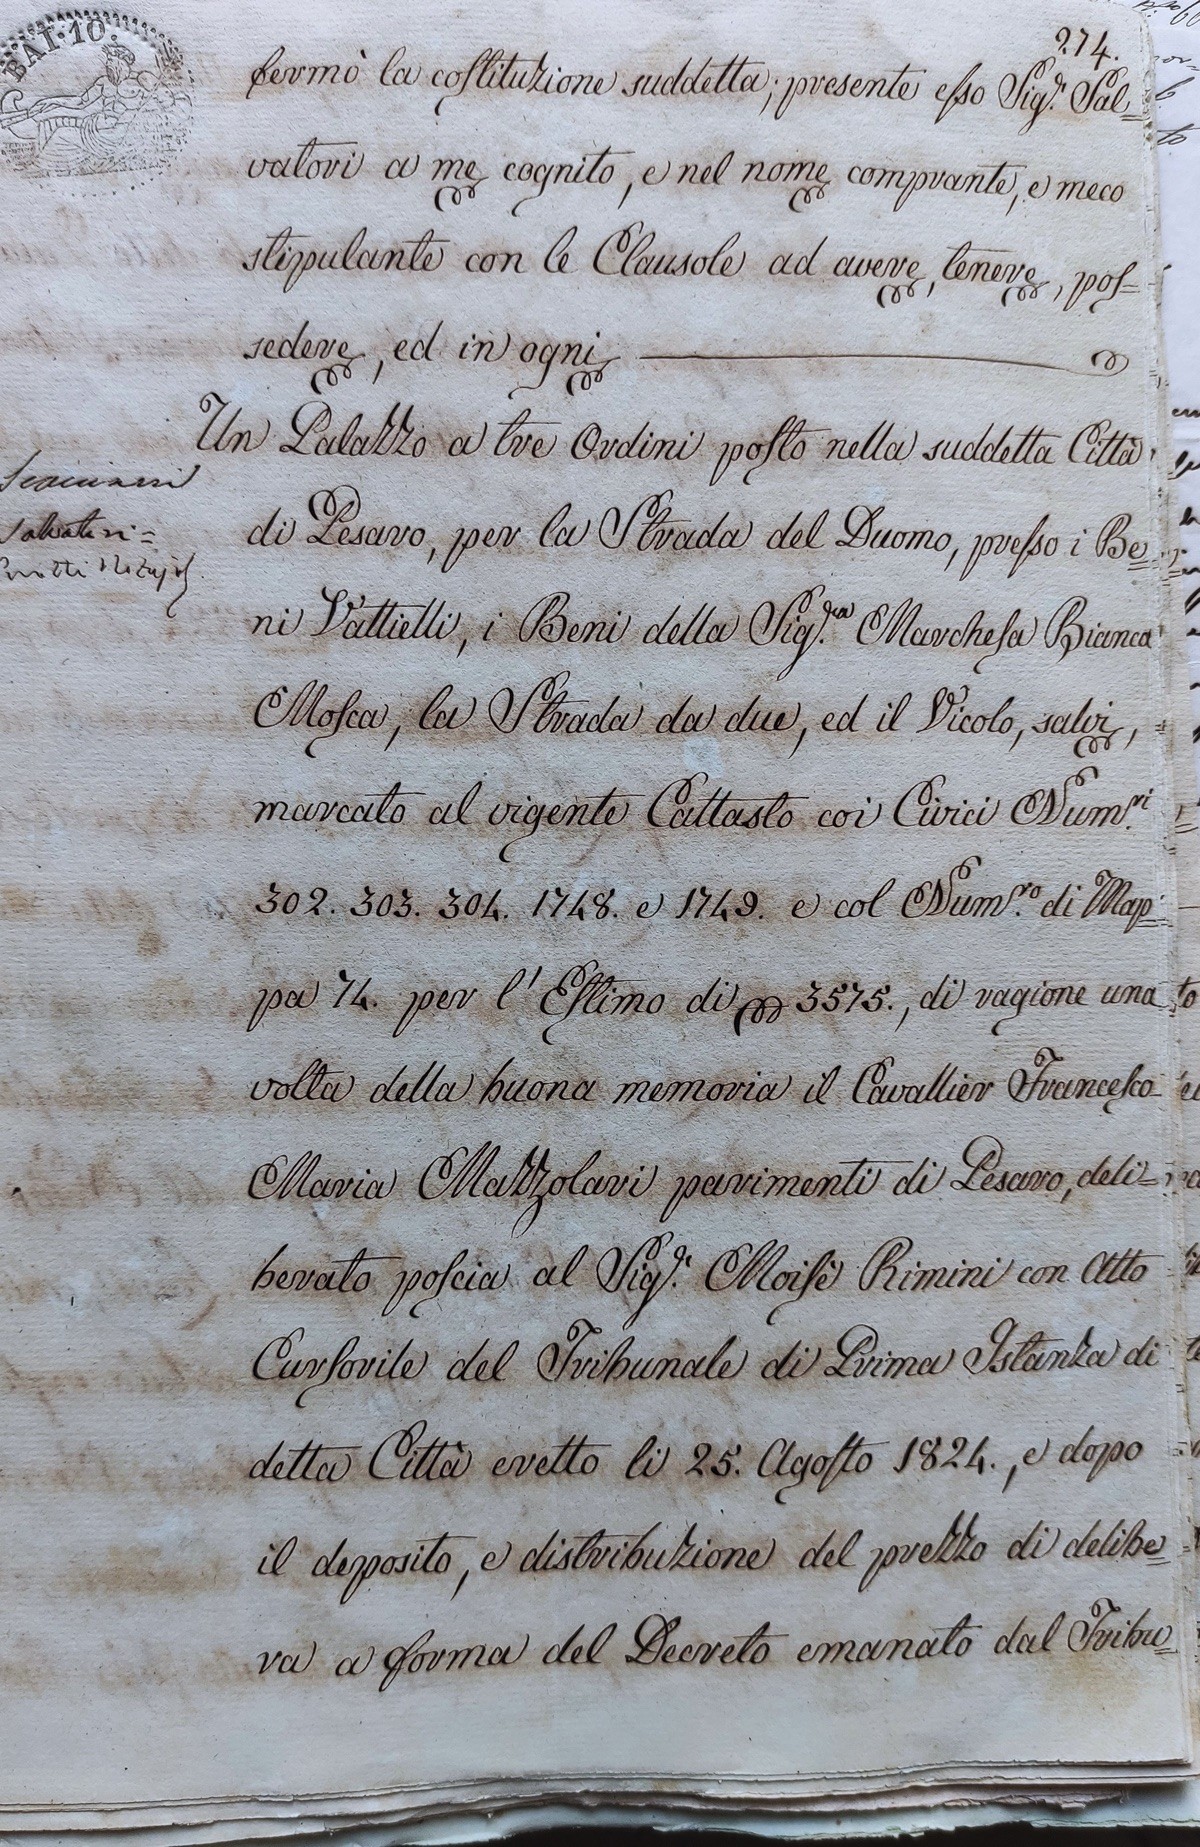 BAI·10.
274.
fermò la costituzione suddetta; presente esso Sig.r Sal=
vatori a me cognito, e nel nome comprante, e meco
stipulante con le Clausole ad avere, tenere, pos=
sedere, ed in ogni
Un Palazzo a tre Ordini posto nella suddetta Città
di Pesaro, per la Strada del Duomo, presso i Be=
ni Vattielli, i Beni della Sig.ra Marchesa Bianca
Mosca, la Strada da due, ed il Vicolo, salvi,
marcato al vigente Cattasto coi Civici Num.ri
302. 303. 304. 1748. e 1749. e col Num.ro di Map=
pa 74. per l'Estimo di 3575., di ragione una
volta della buona memoria il Cavallier Francesco
Maria Mazzolari parimenti di Pesaro, deli=
berato poscia al Sig.r Moisè Rimini con Atto
Cursorile del Tribunale di Prima Istanza di
detta Città eretto li 25. Agosto 1824., e dopo
il depposito, e distribuzione del prezzo di delibe=
ra a forma del Decreto emanato dal Tribu=